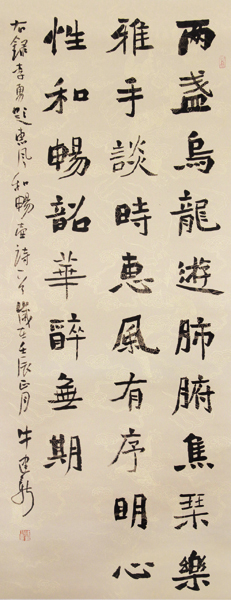 兩盞烏龍遊肺腑焦琹樂
雅手談時惠風有序明心
性和暢韶華醉無期
右錄李勇題惠風和暢壺詩一首歲在壬辰正月牛建新